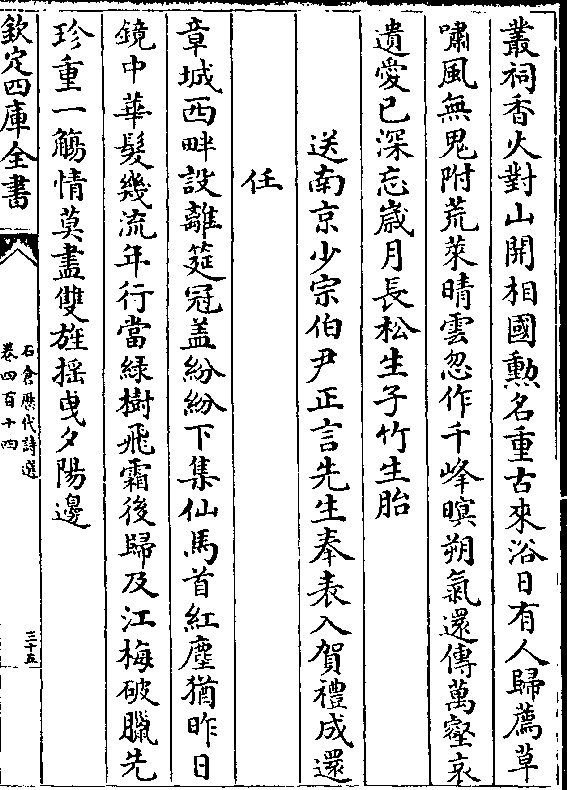 叢祠香火對山開相國勲名重古來浴日有人歸薦草
嘯風無鬼附荒萊晴雲忽作千峰暝朔氣還傳萬壑哀
遺愛已深忘嵗月長松生子竹生胎
送南京少宗伯尹正言先生奉表入賀禮成還
任
章城西畔設離筵冠盖紛紛下集仙馬首紅塵猶昨日
鏡中華髮幾流年行當緑樹飛霜後歸及江梅破臘先
珍重一觴情莫盡雙旌揺曵夕陽邊
欽定四庫全書
石倉歴代詩選
卷四百十四
三十五